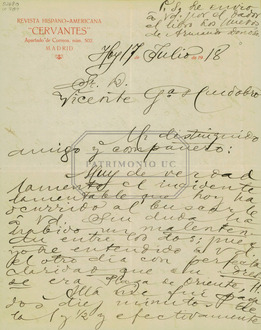 REVISTA HISPANO-AMERICANA
"CERVANTES"
Apartado de Correos, núm. 502
MADRID
P. S. Le envío
a Vd. por el
el libro
de Armando Donoso
Hoy 17 de Julio de 1918
Sr. D.
Vicente Gª Huidobro
Mi distinguido
amigo y compañero:
Muy de verdad
lamento el incidente
lamentable que hoy ha
ocurrido al buscarle
a Vd. Sin duda ha
habido un malenten-
dido entre los dos; pues
yo he entendido a Vd.
el otro día con perfecta
claridad que en
era Plaza de Oriente,
dos diez minutos
la 1 y ½ y efectivamente
PATRIMONIO UC